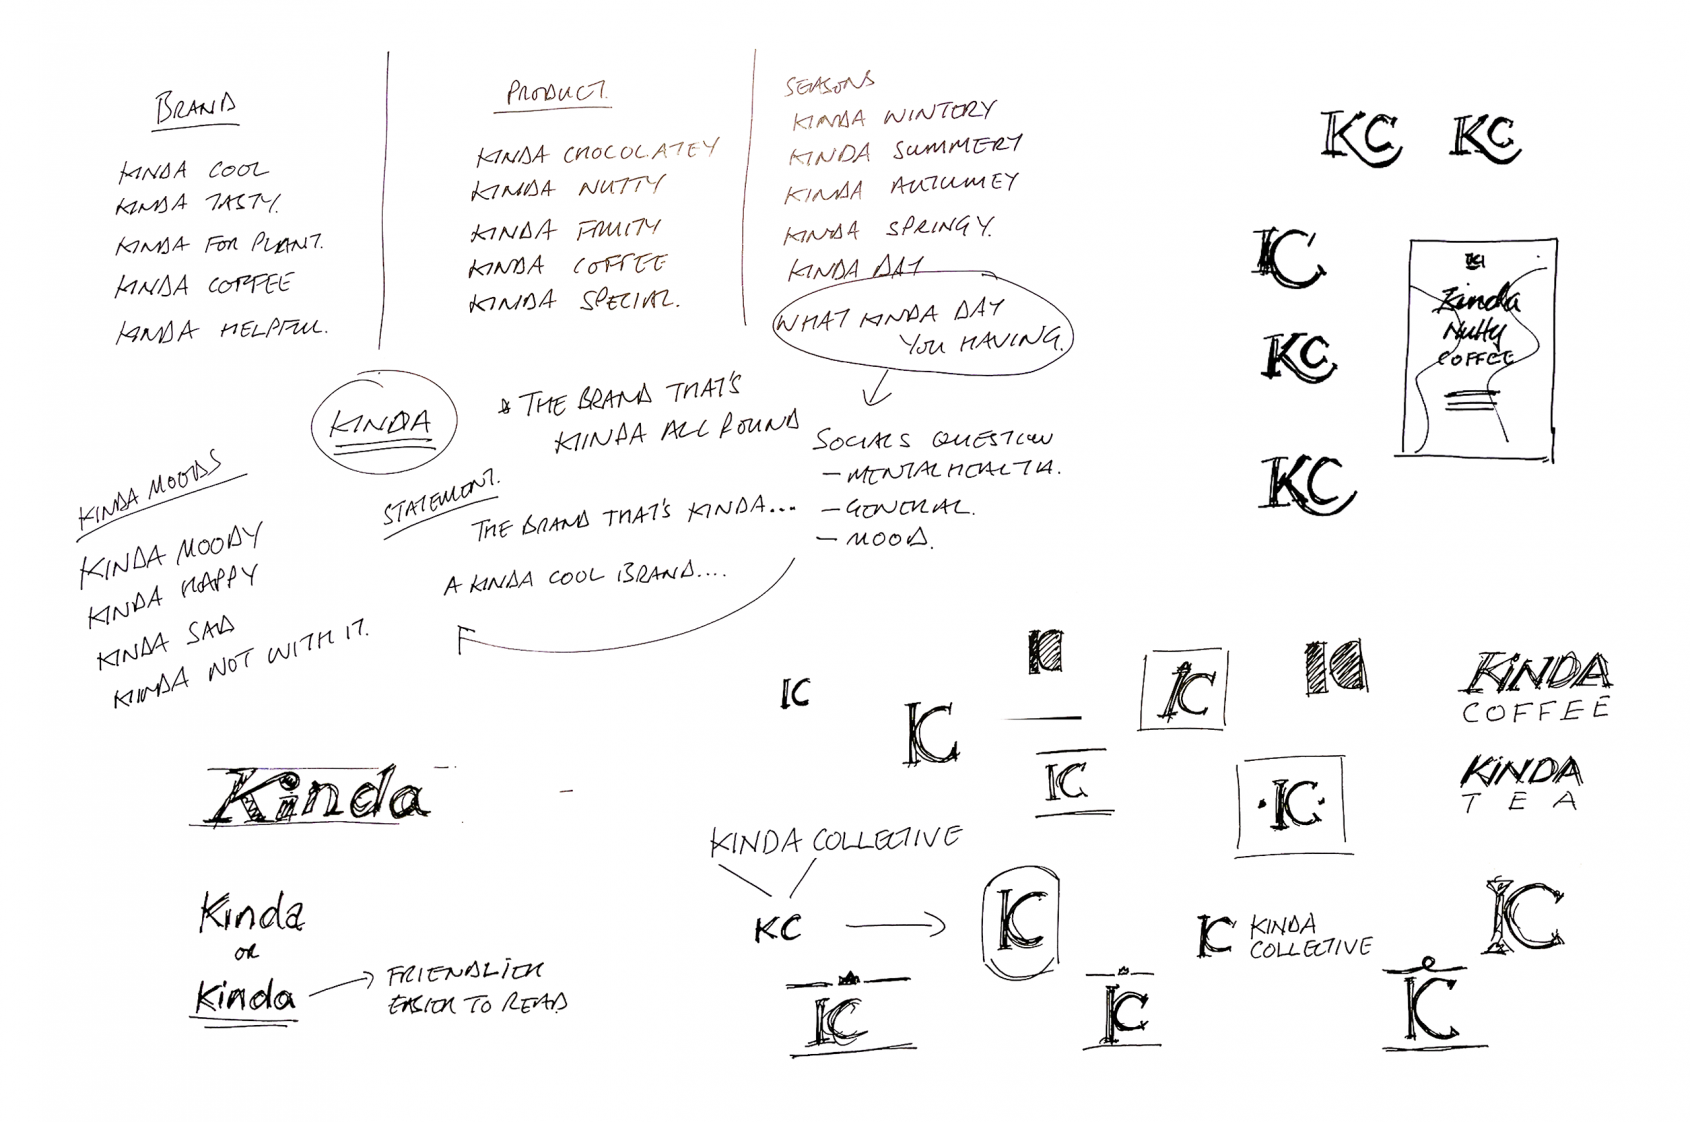 BRAND
KINDA COOL
KINDA TASTY.
KINDA FOR PLANT.
KINDA COFFEE
KINDA HELPFUL.
PRODUCT.
KINDA CHOCOLATEY
KINDA NUTTY
KINDA FRUITY
KINDA COFFEE
KINDA SPECIAL.
SEASONS
KINDA WINTERY
KINDA SUMMERY
KINDA AUTUMEY
KINDA SPRINGY.
KINDA DAY
WHAT KINDA DAY
YOU HAVING.
SOCIALS QUESTION
- MENTAL HEALTH.
- GENERAL.
- MOOD.
KINDA
* THE BRAND THAT'S
KIINDA ALL ROUND
STATEMENT.
THE BRAND THAT'S KINDA...
A KINDA COOL BRAND....
KINDA MOODS
KINDA MOODY
KINDA HAPPY
KINDA SAD
KINDA NOT WITH IT.
KC
KC
KC
KC
KC
KC
Kinda
Nutty
COFFEE
KC
KC
KC
KC
KC
KINDA
COFFEE
KC
KC
KINDA
TEA
Kinda
Kinda
or
Kinda
FRIENDLIER
EASIER TO READ
KINDA COLLECTIVE
KC
KC
KC
KINDA
COLLECTIVE
KC
KC
KC
KC